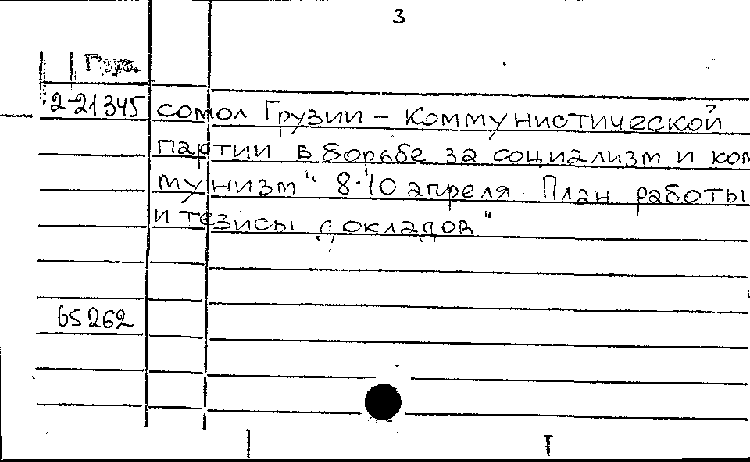 3
Груз.
2-21345 сомол Грузии – Коммунистической
партии в борьбе за социализм и ком
мунизм" 8-10 апреля. План работы
и тезисы докладов"
65262